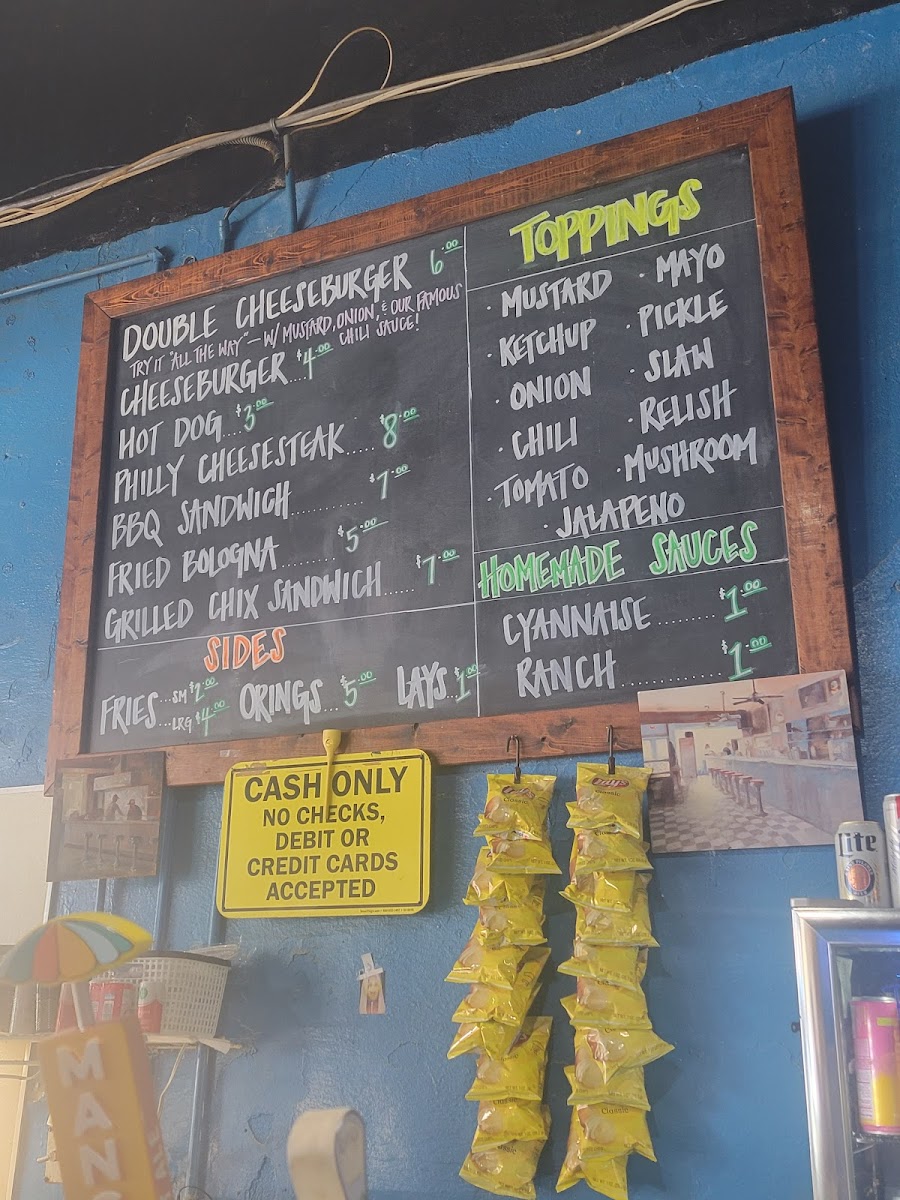 DOUBLE CHEESEBURGER 6.00
TRY IT "ALL THE WAY" - W/ MUSTARD, ONION, & OUR FAMOUS
CHILI SAUCE!
CHEESEBURGER....$4.00
HOT DOG....$3.00
PHILLY CHEESESTEAK.....$8.00
BBQ SANDWICH...........$7.00
FRIED BOLOGNA.........$5.00
GRILLED CHIX SANDWICH......$7.00
SIDES
FRIES...SM $2.00
...LRG $4.00
ORINGS...$5.00
LAYS..$1.00
TOPPINGS
· MUSTARD · MAYO
· KETCHUP · PICKLE
· ONION · SLAW
· CHILI · RELISH
· TOMATO · MUSHROOM
· JALAPENO
HOMEMADE SAUCES
CYANNAISE........$1.00
RANCH............$1.00
CASH ONLY
NO CHECKS,
DEBIT OR
CREDIT CARDS
ACCEPTED
Lay's
Classic
Lay's
Classic
Classic
Classic
Lite
MANG